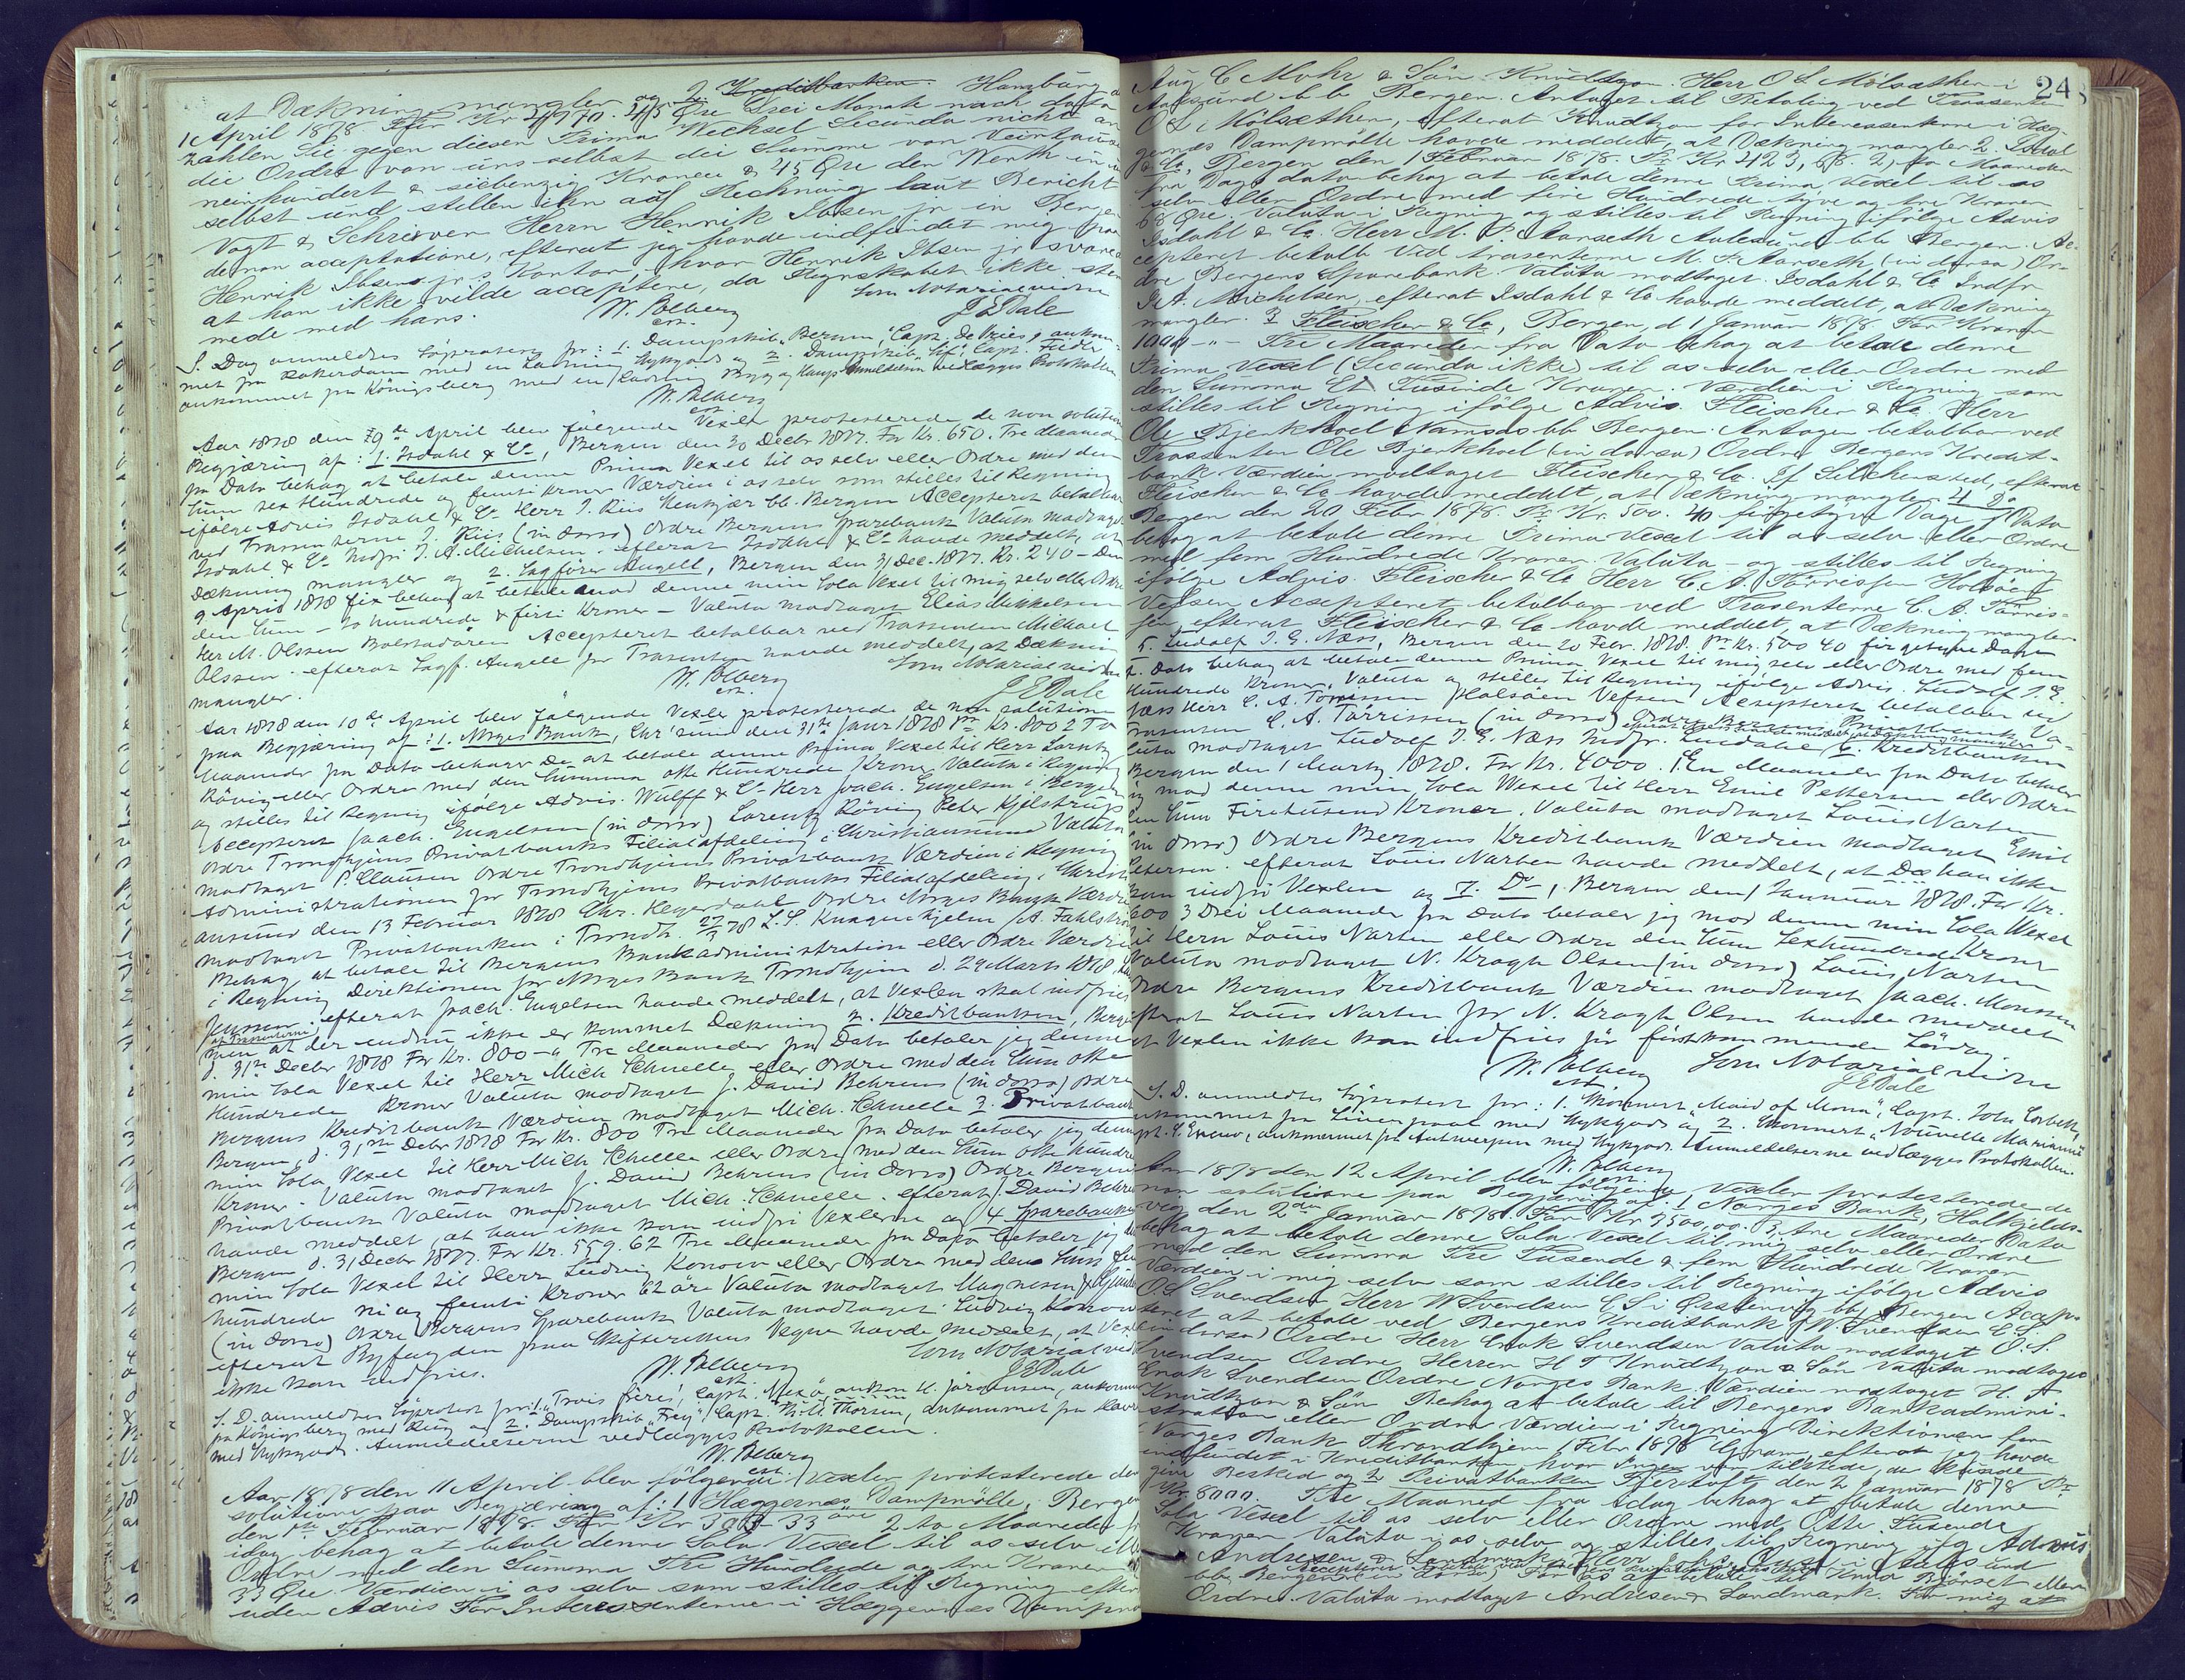 at Dækning mangler og 2 Kreditbanken. Hamburg d
1 April 1878 Für Kr 24970. 45 Øre Drei Monate nach dato
zahlen Sie gegen diesen Prima Wechsel Secunda nicht an
die Ordre von uns selbst die Summe von
neinhundert & siebenzig Kronen & 45 Øre den Werth in
selbst und stellen ihn auf Rechnung laut Bericht
Vogt & Schriever Herrn Henrik Ibsen jr in Bergen
de non acceptatione, efterat jeg havde indfundet mig paa
Henrik Ibsens jr's Kontor, hvor Henrik Ibsen jr svarede
at han ikke vilde acceptere, da Regnskabet ikke stem
mede med hans.
Som Notarialvidne
W. Polberg
est.
J E Dale
S. Dag anmeldtes Søprotest pr: 1. Dampskib "Bergen", Capt. De Vries, ankom-
met fra Rotterdam med en Ladning Stykgods og 2. Dampskib "Sif", Capt. Fiedler
ankommet fra Königsberg med en Ladning Byg og Hamp. Anmeldelserne vedlægges Protokollen
W. Polberg
est
Aar 1878 den 9de April blev følgende Vexler protesterede de non solutione
Begjæring af: 1. Isdahl & Co, Bergen den 30 Decbr 1877. For Kr. 650. Tre Maaneder
fra Dato behag at betale denne Prima Vexel til os selv eller Ordre med den
Sum sex Hundrede og femti Kroner Værdien i os selv som stilles til Regning
ifølge Advis Isdahl & Co Herr J. Riis bb. Bergen Accepteret betalbar
ved Trassenterne J. Riis (in dorso) Ordre Bergens Sparebank Valuta modtaget
Isdahl & Co Indfr. J. A. Michelsen. efterat Isdahl & Co havde meddelt, at
Dækning mangler og 2. Sagfører Angell, Bergen den 31 Dec. 1877. Kr. 240 - Den
9 April 1878 fix behag at betale mod denne min Sola Vexel til mig selv eller Ordre
den Sum - to hundrede & firti Kroner - Valuta modtaget Elias Mikkelsen
Herr M. Olssen Bolstadøren Accepteret betalbar ved Trassenten Michael
Olssen. efterat Sagf. Angell for Trasenten havde meddelt, at Dækning
mangler.
Som Notarialvidne
W. Polberg
est.
J E Dale
Aar 1878 den 10de April blev følgende Vexler protesterede de non solutione
paa Begjæring af: 1. Norges Bank, Chr'sund den 31te Janr 1878 pr Kr. 800 2 To
Maaneder fra Dato behager De at betale denne Prima Vexel til Herr Lorentz
Röving eller Ordre med den Summa otte Hundrede Kroner Valuta i Regning
og stilles til Regning ifølge Advis. Wulff & Co Herr Joach. Engelsen i Bergen
Accepteret Joach. Engelsen (in dorso) Lorentz Röving Peter Kjelstrup
Ordre Trondhjems Privatbanks Filialafdeling i Christiansund Valuta
modtaget P. Clausen Ordre Trondhjems Privatbank Værdien i Regning
Administrationen for Trondhjems Privatbanks Filialafdeling i Christi
ansund den 13 Februar 1878 Chr. Heyerdahl Ordre Norges Bank Værdien
modtaget Privatbanken i Trondh. 27/3 78 L. S. Knagenhjelm A. Fahlstrøm
Behag at betale til Bergens Bankadministration eller Ordre Værdien
i Regning Direktionen for Norges Bank Trondhjem d. 29 Marts 1878
Jenssen. efterat Joach. Engelsen havde meddelt, at Vexlen skal indfries
af Trasenterne
men at der endnu ikke er kommet Dækning 2. Kreditbanken, Bergen
d. 31te Decbr 1878 For Kr. 800 - Tre Maaneder fra Dato betaler jeg denne
min Sola Vexel til Herr Mich Schnelle eller Ordre med den Sum otte
Hundrede Kroner Valuta modtaget J. David Behrens (in dorso) Ordre
Bergens Kreditbank Værdien modtaget Mich. Schnelle 3. Privatbanken
Bergen, d. 31te Decbr 1878 For Kr. 800 Tre Maaneder fra Dato betaler jeg denne
min Sola Vexel til Herr Mich Schnelle eller Ordre med den Sum otte hundrede
Kroner - Valuta modtaget J. David Behrens (in dorso) Ordre Bergens
Privatbank Valuta modtaget Mich. Schnelle. efterat J. David Behrens
havde meddelt, at han ikke kan indfri Vexlerne og 4 Sparebanken
Bergen d. 31 Decbr 1877. For Kr. 559. 62 Tre Maaneder fra Dato betaler jeg
min Sola Vexel til Herr Ludvig Konow eller Ordre med den Sum fem
hundrede ni og femti Kroner 62 øre Valuta modtaget Magnesen
(in dorso) Ordre Bergens Sparebank Valuta modtaget Ludvig Konow
efterat Byfogden paa Vegne havde meddelt, at Vexlen
ikke kan indfries.
Som Notarialvidne
W. Polberg
est.
J E Dale
S. D. anmeldtes Søprotest pr: 1. "Trois frères", Capt. H. Jørgensen, ankommet
fra Königsberg med Rug og 2. Dampskib "Frey", Capt. Thorsen, ankommet fra Havre
med Stykgods. Anmeldelserne vedlægges Protokollen.
W. Polberg
est.
Aar 1878 den 11 April blev følgende Vexler protesterede de non
solutione paa Begjæring af: 1 Hæggernæs Dampmølle, Bergen
den 1te Februar 1878. For Kr 303 33 øre 2 to Maaneder fra
idag behag at betale denne Sola Vexel til os selv eller
Ordre med den Summa Tre Hundrede og tre Kroner
33 Øre. Værdien i os selv som stilles til Regning efter
uden Advis For Interessenterne i Hæggernæs Dampmølle
24
Aug C Mohr & Søn Knudtzon. Herr O L Mølsæther i
Aalesund bb Bergen. Antages til Betaling ved Trasenten
O L Mølsæther, efterat Knudtzon for Interessenterne i Hæg-
gernæs Dampmølle havde meddelt, at Dækning mangler 2. Isdahl
& Co, Bergen den 1 Februar 1878. Pr Kr 423, 68. 2 to Maaneder
fra Dags dato behag at betale denne Prima Vexel til os
selv eller Ordre med fire Hundrede tyve og tre Kroner
68 Øre. Valuta i Regning og stilles til Regning ifølge Advis
Isdahl & Co. Herr M. P. Aarseth Aalesund bb Bergen. Ac-
cepteret betalb ved trasenterne M. P. Aarseth (in dorso) Or-
dre Bergens Sparebank. Valuta modtaget. Isdahl & Co Indfr.
J. A. Michelsen, efterat Isdahl & Co havde meddelt, at Dækning
mangler. 3 Fleischer & Co, Bergen, d 1 Januar 1878 For Kroner
1000 - " - Tre Maaneder fra Dato behag at betale denne
Prima Vexel (Secunda ikke) til os selv eller Ordre med
den Summa Et Tusinde Kroner. Værdien i Regning som
stilles til Regning ifølge Advis. Fleischer & Co. Herr
Ole Bjerkhoel Namsos bb Bergen. Antagen betalbar ved
Trassenten Ole Bjerkhoel (in dorso) Ordre Bergens Kredit-
bank Værdien modtaget Fleischer & Co. If. efterat
Fleischer & Co havde meddelt, at Dækning mangler 4 do
Bergen den 20 Febr 1878. Pr Kr. 500. 40 firgetyve Dage f Dato
behag at betale denne Prima Vexel til os selv eller Ordre
med fem Hundrede Kroner. Valuta - og stilles til Regning
ifølge Advis. Fleischer & Co Herr C. A. Tørrissen Holsøen
Vefsen Accepteret betalbar ved Trasenterne C. A. Tørris-
sen, efterat Fleischer & Co havde meddelt, at Dækning mangler
5. Ludolf J. G. Næss, Bergen den 20 Febr. 1878. Pr Kr. 500 40 firgetyve Dage
f. Dato behag at betale denne Prima Vexel til mig selv eller Ordre med fem
Hundrede Kroner, Valuta og stilles til Regning ifølge Advis. Ludolf J. G.
Næss Herr C. A. Tørrissen Holsøen Vefsen Accepteret betalbar ved
Trasenten C. A. Tørrissen (in dorso) Ordre Bergens Privatbank Va-
luta modtaget Ludolf J. G. Næss Indfr. Lindahl 6. Kreditbanken
Bergen den 1 Marts 1878. For Kr. 4000. 1 En Maaneder fra Dato betaler
jeg mod denne min Sola Wexel til Herr Emil Pettersen eller Ordre
den Sum Firetusend Kroner, Valuta modtaget Louis Narten
(in dorso) Ordre Bergens Kreditbank Værdien modtaget Emil
Petersen. efterat Louis Narten havde meddelt, at han ikke
kan indfri Vexlen og 7. Do, Bergen den 1 Januar 1878. For Kr.
600 3 Drei Maaneder fra Dato betaler jeg mod denne min Sola Wexel
til Herrn Louis Narten eller Ordre den Sum Sexhundrede Kroner
Valuta modtaget N. Krogh Olsen (in dorso) Louis Narten
Ordre Bergens Kreditbank Værdien modtaget Joach. Monssen
efterat Louis Narten for N. Krogh Olsen havde meddelt
at Vexlen ikke kan indfries før førstkommende Lørdag.
W. Polberg
est
Som Notarialvidne
J E Dale
S. D. anmeldtes Søprotest pr: 1. Skonnert "Maid of Mona", Capt. John Corbett,
ankommet fra Liverpool med Stykgods og 2. Skonnert "Nouvelle Marianne"
Capt. ankommet fra Antwerpen med Stykgods. Anmeldelserne vedlægges Protokollen.
W. Polberg
est.
Aar 1878 den 12 April blev følgende Vexler protesterede de
non solutione paa Begjæring af 1 Norges Bank, Halkjelds-
vig den 2den Januar 1878. For Kr 3500,00. 3, tre Maaneder Dato
behag at betale denne Sola Vexel til mig selv eller Ordre
med den Summa Tre Tusende & fem Hundrede Kroner
Værdien i mig selv som stilles til Regning ifølge Advis
O. S. Svendsen Herr W Svendsen E S i Ørstenvig bb Bergen Accep-
teret at betale ved Bergens Kreditbank W. Svendsen E. S.
(in dorso) Ordre Herr Enok Svendsen Valuta modtaget O. S.
Svendsen Ordre Herren H T Knudtzon & Søn Valuta modtaget
Enok Svendsen Ordre Norges Bank. Værdien modtaget H. T
Knudtzon & Søn Behag at betale til Bergens Bankadmini-
stration eller Ordre Værdien i Regning Direktionen for
Norges Bank Throndhjem 1 Febr 1878 Gram, efterat jeg havde
indfundet i Kreditbanken, hvor Ingen var tilstede, der kunde
give Besked og 2 Privatbanken Fjørtoft den 2 Januar 1878 Pr
Kr. 8000. Tre Maaned fra Idag behag at betale denne
Sola Vexel til os selv eller Ordre med Otte Tusende
Kroner Valuta i os selv og stilles til Regning ifg Advis
Andresen & Landmark Herr John Rusti i Aalesund
bb Bergen (in dorso) For os betale til Knud Bjørset eller
Ordre. Valuta modtaget Andresen & Landmark. For mig at